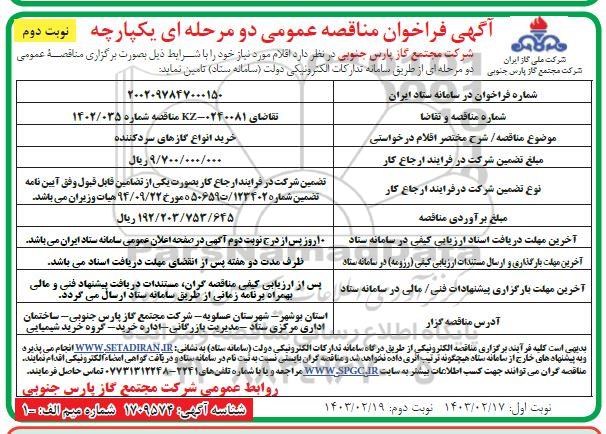 آگهی فراخوان مناقصه عمومی دو مرحله ای یکپارچه
نوبت دوم
شرکت ملی گاز ایران
شرکت مجتمع گاز پارس جنوبی
شرکت مجتمع گاز پارس جنوبی در نظر دارد اقلام مورد نیاز خود را با شرایط ذیل بصورت برگزاری مناقصه عمومی
دو مرحله ای از طریق سامانه تدارکات الکترونیکی دولت (سامانه ستاد) تامین نماید:
شماره فراخوان در سامانه ستاد ایران
۲۰۰۲۰۹۷۸۴۷۰۰۰۱۵۰
شماره مناقصه و تقاضا
تقاضای KZ-۰۲۴۰۰۸۱ مناقصه شماره ۱۴۰۲/۰۳۵
موضوع مناقصه/ شرح مختصر اقلام درخواستی
خرید انواع گازهای سردکننده
مبلغ تضمین شرکت در فرایند ارجاع کار
۹/۷۰۰/۰۰۰/۰۰۰ ریال
نوع تضمین شرکت درفرایند ارجاع کار
تضمین شرکت در فرایند ارجاع کار بصورت یکی از تضامین قابل قبول وفق آیین نامه
تضمین شماره ۱۲۳۴۰۲/ت۵۰۶۵۹ه مورخ ۹۴/۰۹/۲۲ هیات وزیران می باشد.
مبلغ برآوردی مناقصه
۱۹۲/۲۰۳/۷۵۳/۶۴۵ ریال
آخرین مهلت دریافت اسناد ارزیابی کیفی در سامانه ستاد
۱۰روز پس از درج نوبت دوم آگهی در صفحه اعلان عمومی سامانه ستاد ایران می باشد.
آخرین مهلت بارگذاری و ارسال مستندات ارزیابی کیفی (رزومه) در سامانه ستاد
ظرف مدت دو هفته پس از انقضای مهلت دریافت اسناد می باشد.
آخرین مهلت بارگزاری پیشنهادات فنی/ مالی در سامانه ستاد
پس از ارزیابی کیفی مناقصه گران، مستندات دریافت پیشنهاد فنی و مالی
بهمراه برنامه زمانی از طریق سامانه ستاد ارسال می گردد.
آدرس مناقصه گزار
استان بوشهر- شهرستان عسلویه- شرکت مجتمع گاز پارس جنوبی- ساختمان
اداری مرکزی ستاد -مدیریت بازرگانی-اداره خرید- گروه خرید شیمیایی
بدیهی است کلیه فرآیند برگزاری مناقصه از طریق درگاه سامانه تدارکات الکترونیکی دولت (سامانه ستاد) به نشانی: WWW.SETADIRAN.IR انجام می پذیرد
و به پیشنهاد های خارج از سامانه ستاد هیچگونه ترتیب اثری داده نخواهد شد و مناقصه گران بایستی نسبت به ثبت نام در سامانه ستاد و دریافت گواهی امضاء الکترونیکی اقدام نمایند.
مناقصه گران می توانند جهت کسب اطلاعات بیشتر به سایت WWW.SPGC.IR مراجعه و یا با شماره تلفن های ۲۲۴۱-۰۷۷۳۱۳۱۲۲۴۸ تماس حاصل فرمایند.
روابط عمومی شرکت مجتمع گاز پارس جنوبی
نوبت اول: ۱۴۰۳/۰۲/۱۷ نوبت دوم: ۱۴۰۳/۰۲/۱۹
شناسه آگهی: ۱۷۰۹۵۷۴ شماره میم الف: ۱۰